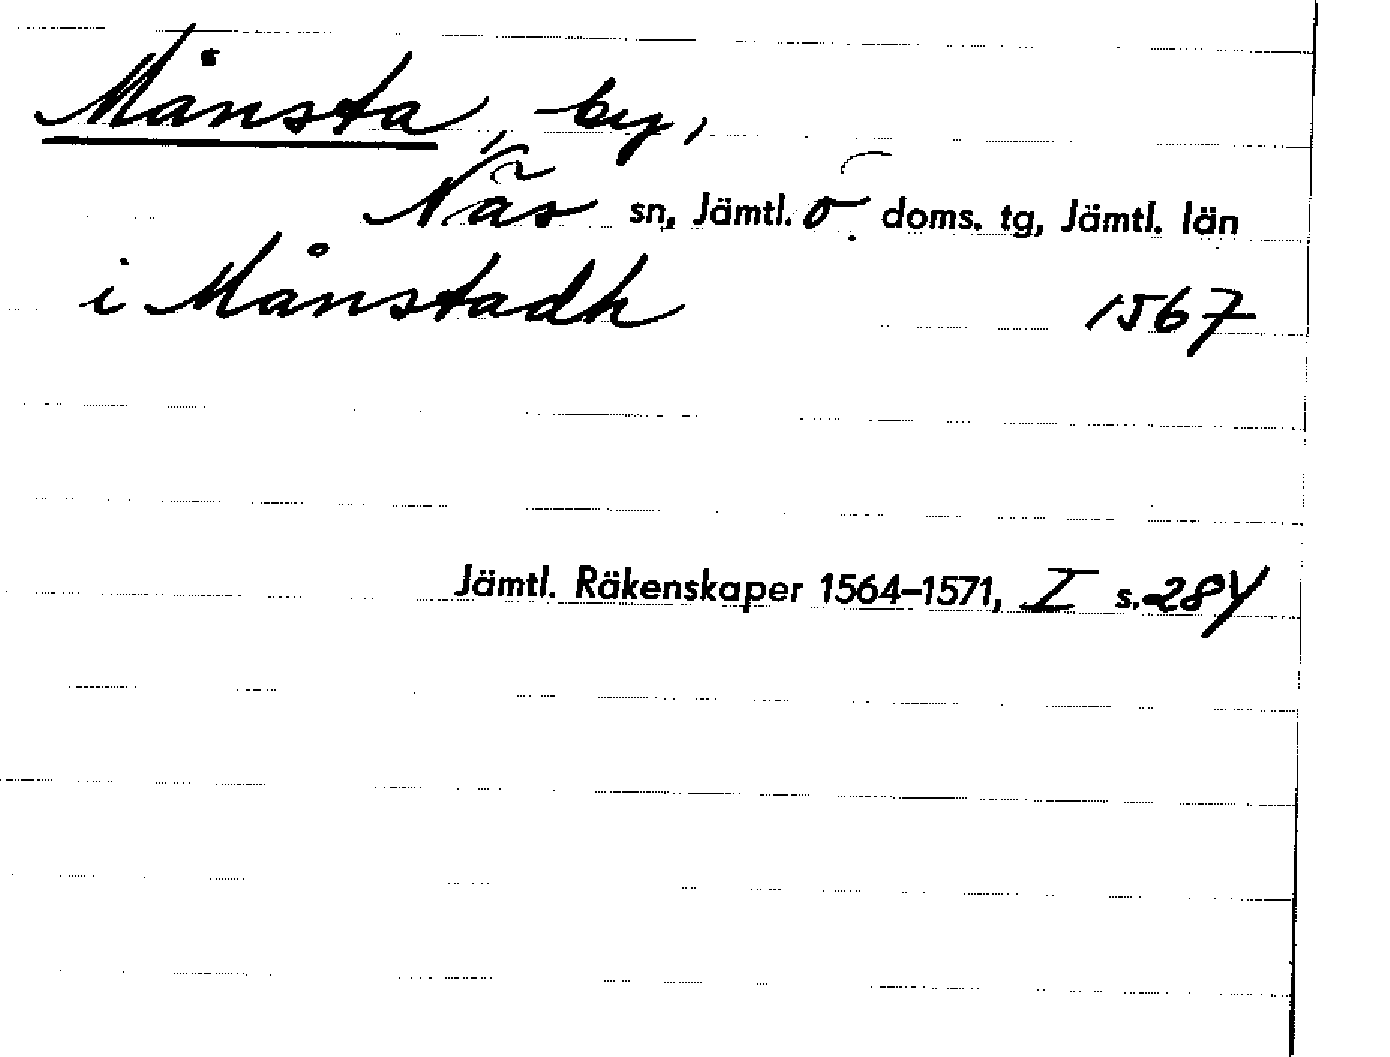 Månsta, by,
Näs sn, Jämtl. ö. doms. tg, Jämtl. län
i Månstadh 1567
Jämtl. Räkenskaper 1564–1571, I s. 284